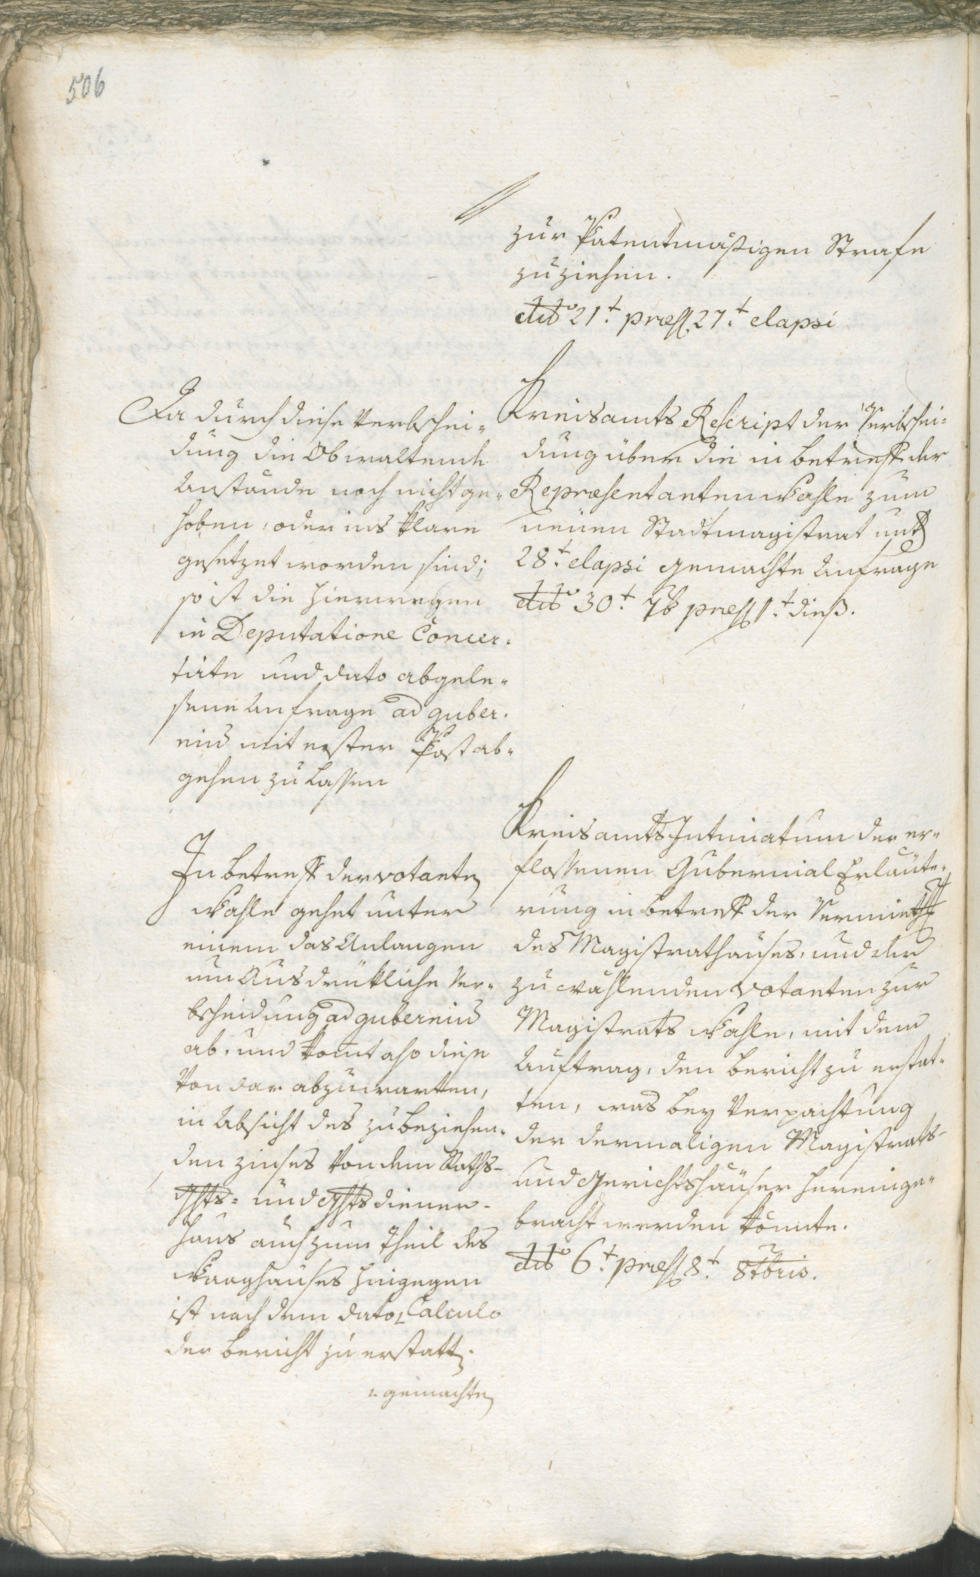 506
zur Patentmäßigen Strafe
zuziehen.
ddto 21t præss. 27t elapsi
Kreisamts Rescript der Verbschei-
dung über die in betreff der
Repræsentanten Wahle zum
neuen Stadtmagistrat unterm
28t elapsi gemachte Anfrage
ddto 30t 7b præss 1t dieß.
Da durch diese Verbschei-
dung die Obwaltende
Anstände noch nicht ge-
hoben, oder ins klare
gesetzet worden sind;
so ist die hierwegen
in Deputatione Concer-
tirte und dato abgele-
sene Anfrage ad guber-
niū mit erster Post ab-
gehen zu lassen
Kreisamts Intimatum der er-
flossenen Gubernial Erläute-
rung in betreff der Vermiettung
des Magistrathauses, und der
zu wählenden Votanten zur
Magistrats Wahle, mit dem
Auftrag, den bericht zu erstat-
ten, was bey Verpachtung
der dermaligen Magistrats-
und Gerichtshäuser hereinge-
bracht werden könnte.
ddto 6t præss 8t 8tbris.
In betreff der votanten
Wahle gehet unter
einem das Anlangen
um Ausdrükliche Ver-
bscheidung ad guberniū
ab, und komt also diese
von dar abzuwarten,
in Absicht des zu beziehen-
den zinses von dem Raths-
Ghts- und Ghtsdiener-
haus auch zum Theil des
Waaghauses hingegen
ist nach dem dato Calculo
der bericht zu erstatten.
gemachten